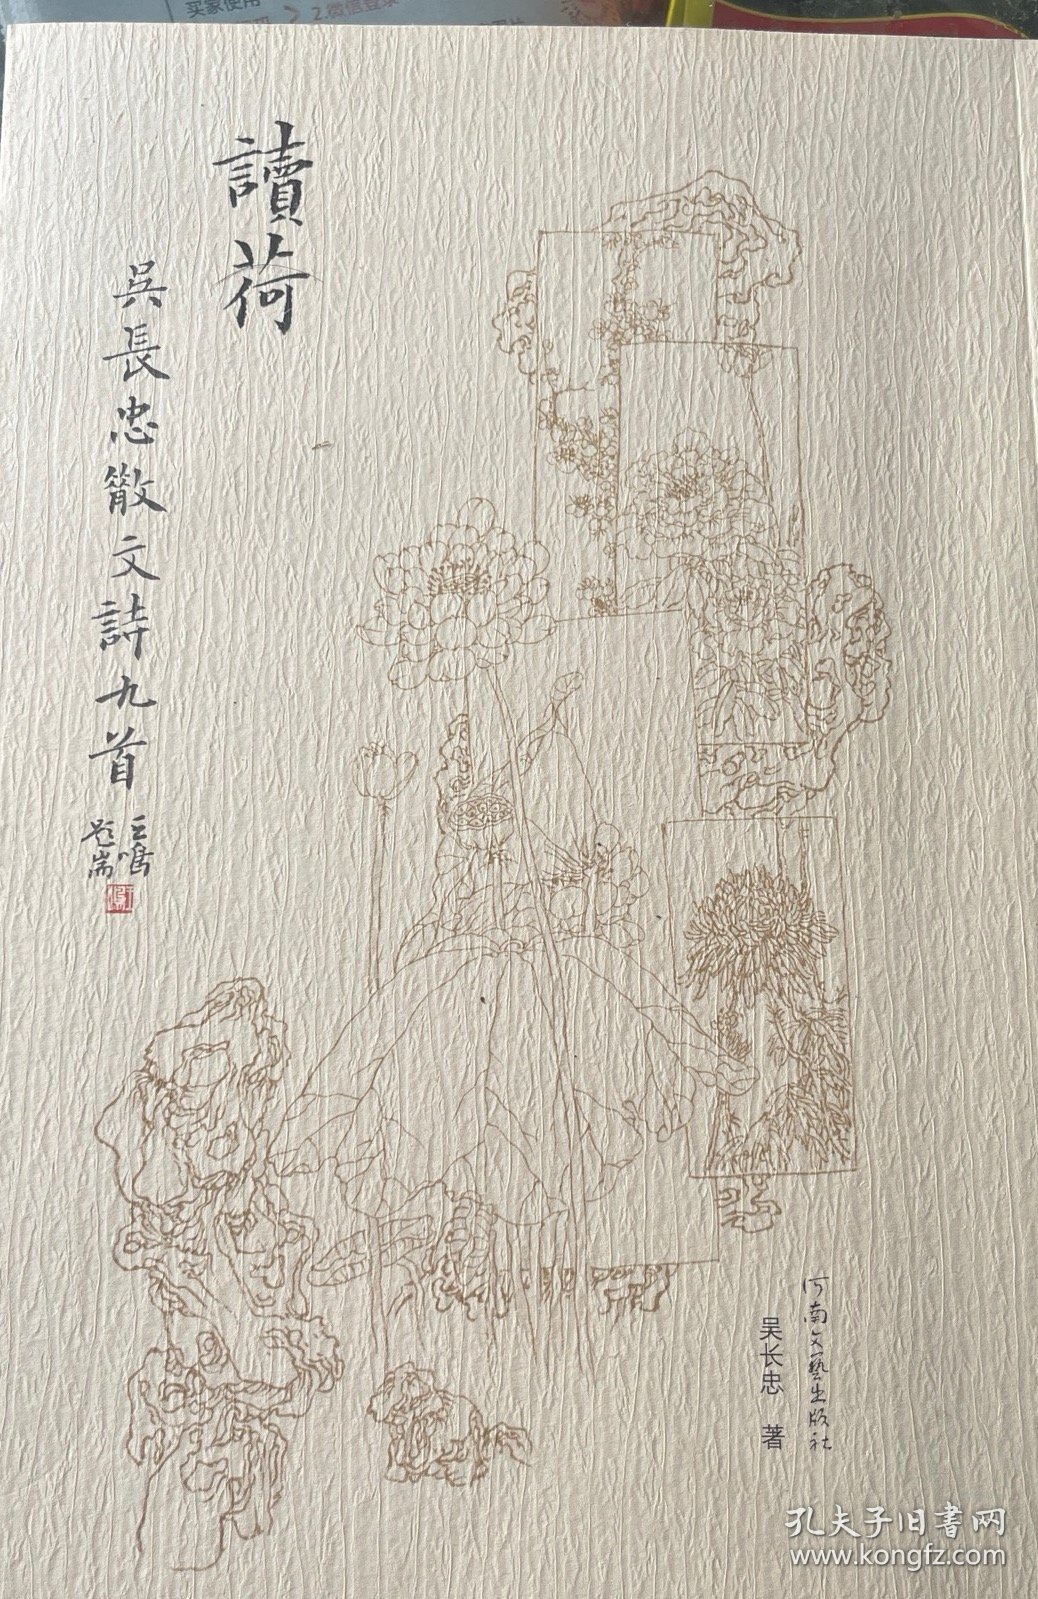 买家使用
2.微信登录
讀荷
吳長忠散文詩九首
王鳴
題耑
河南文藝出版社
吴长忠 著
孔夫子旧書网
www.kongfz.com